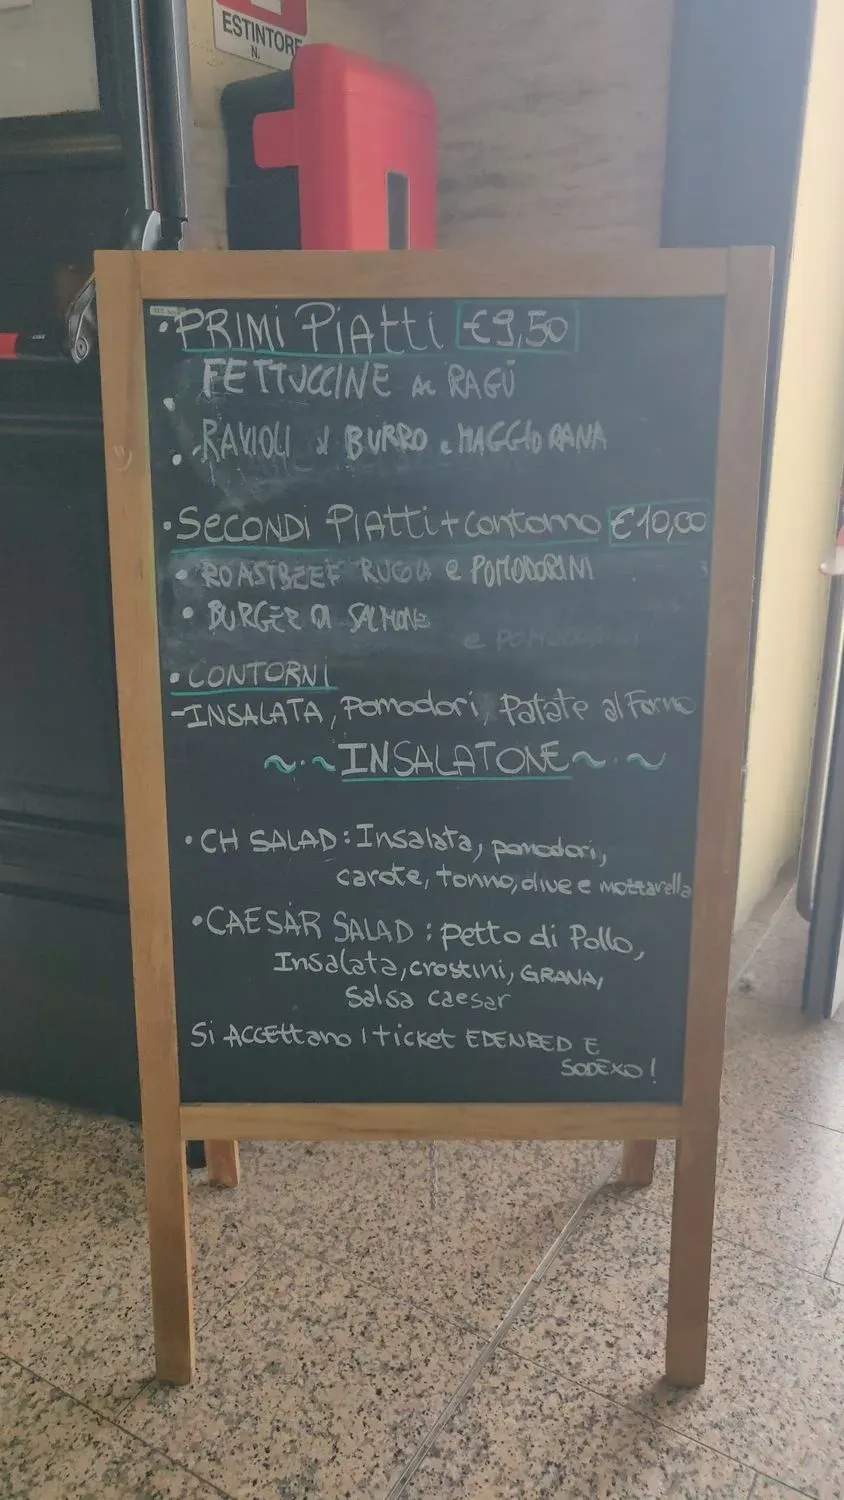 ESTINTORE
N.
• PRIMI PIATTI €9,50
FETTUCCINE AL RAGÙ
• RAVIOLI BURRO e MAGGIORANA
• SECONDI PIATTI + contorno €10,00
• ROASTBEEF RUGOLA e POMODORINI
• BURGER DI SALMONE
e POMODORINI
• CONTORNI
- INSALATA, Pomodori, Patate al Forno
~·~ INSALATONE ~·~
• CH SALAD: Insalata, pomodori,
carote, tonno, olive e mozzarella
• CAESAR SALAD: petto di Pollo,
Insalata, crostini, GRANA,
Salsa caesar
Si ACCETTANO I ticket EDENRED E
SODEXO!